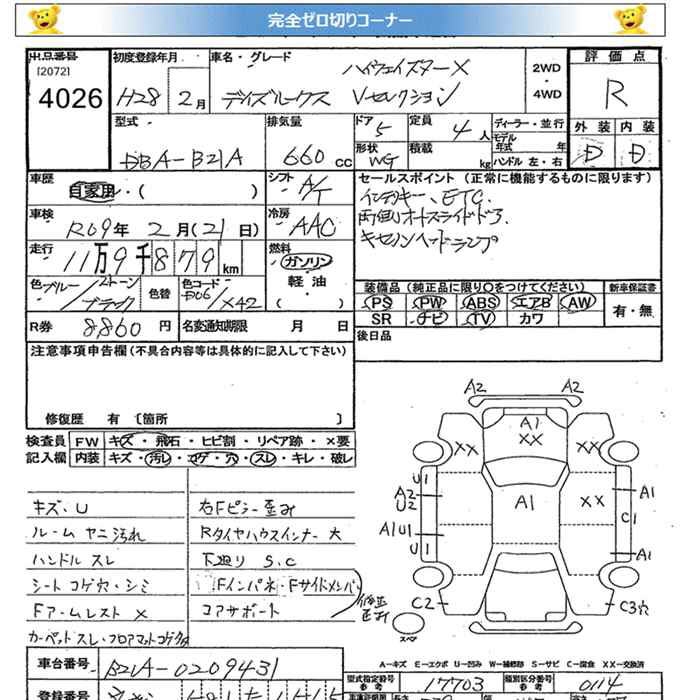 完全ゼロ切りコーナー
出品番号
[2072]
4026
初度登録年月
H28 2月
車名・グレード
ハイウェイスターX
デイズルークス Vセレクション
2WD
・
4WD
評価点
R
外装 内装
D D
型式
DBA-B21A
排気量
660 cc
ドア 5
形状 WG
定員 4 人
積載 kg
ディーラー・並行
モデル
年式 年
ハンドル 左・右
車歴
自家用・( )
シフト A/T
車検
R09年 2月(21日)
冷房 AAC
走行
11万9千879 km
燃料
ガソリン
軽油
( )
色 ブルー/2トーン
ブラック
色替
色コード
/X42
R券 8860 円
名変通知期限 月 日
セールスポイント (正常に機能するものに限ります)
インテキー、ETC
両側オートスライドドア
キセノンヘッドランプ
装備品 (純正品に限り〇をつけてください)
新車保証書
PS PW ABS エアB AW
SR ナビ TV カワ
有・無
後日品
注意事項申告欄(不具合内容等は具体的に記入して下さい)
修復歴 有 〔箇所 〕
検査員
記入欄
FW キズ・飛石・ヒビ割・リペア跡・×要
内装 キズ・汚レ・コゲ・穴・スレ・キレ・破レ
キズ・U
ルーム ヤニ汚れ
ハンドル スレ
シート コゲ穴・シミ
Fアームレスト ×
カーペットスレ・フロアマットコゲ
右Fピラー歪み
Rタイヤハウスインナー 大
下廻り S.C
Fインパネ・Fサイドメンバー
コアサポート
修正
歪み
A2 A2
A1
XX
XX
U1
A2
U2
A1
XX
A1
C1
A1U1
U1
A1
C2
C3穴
スペア
A-キズ E-エクボ U-凹み W-補修跡 S-サビ C-腐食 XX-交換済
車台番号 B21A-0209431
型式指定番号
参考
17703
類別区分番号
参考
0114
登録番号